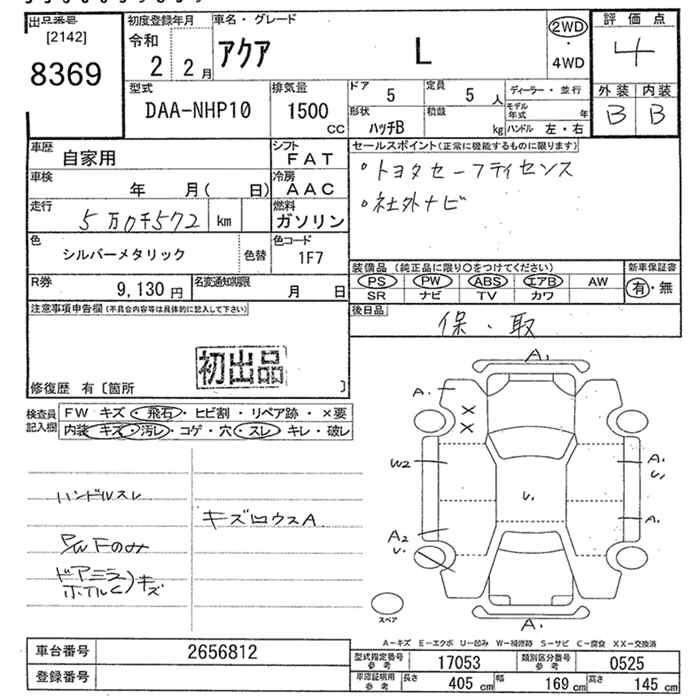 出品番号
[2142]
8369
初度登録年月
令和
2 2月
車名・グレード
アクア L
2WD
・
4WD
評価点
4
外装 内装
B B
型式
DAA-NHP10
排気量
1500
CC
ドア 5
定員 5 人
ディーラー・並行
モデル年式 年
形状 ハッチB
積載 kg
ハンドル 左・右
車歴 自家用
シフト FAT
車検 年 月( 日)
冷房 AAC
走行 5万0千572 km
燃料 ガソリン
色 シルバーメタリック 色替
色コード 1F7
R券 9,130円
名変通知期限 月 日
セールスポイント(正常に機能するものに限ります)
・トヨタセーフティセンス
・社外ナビ
装備品 (純正品に限り○をつけてください)
新車保証書
PS PW ABS エアB AW
有・無
SR ナビ TV カワ
後日品
保・取
注意事項申告欄(不具合内容等は具体的に記入して下さい)
初出品
修復歴 有〔箇所 〕
検査員
記入欄
FW キズ・飛石・ヒビ割・リペア跡・×要
内装 キズ・汚レ・コゲ・穴・スレ・キレ・破レ
ハンドルスレ
キズロウスA
P/W Fのみ
ドアミラー
ホイルC)キズ
A1
A1
X
X
W2
A1
U1
U1
A2
U1
A1
スペア
A1
A-キズ E-エクボ U-凹み W-補修跡 S-サビ C-腐食 XX-交換済
車台番号 2656812
登録番号
型式指定番号
参考
17053
類別区分番号
参考
0525
車庫証明用
参考
長さ 405 cm 幅 169 cm 高さ 145 cm